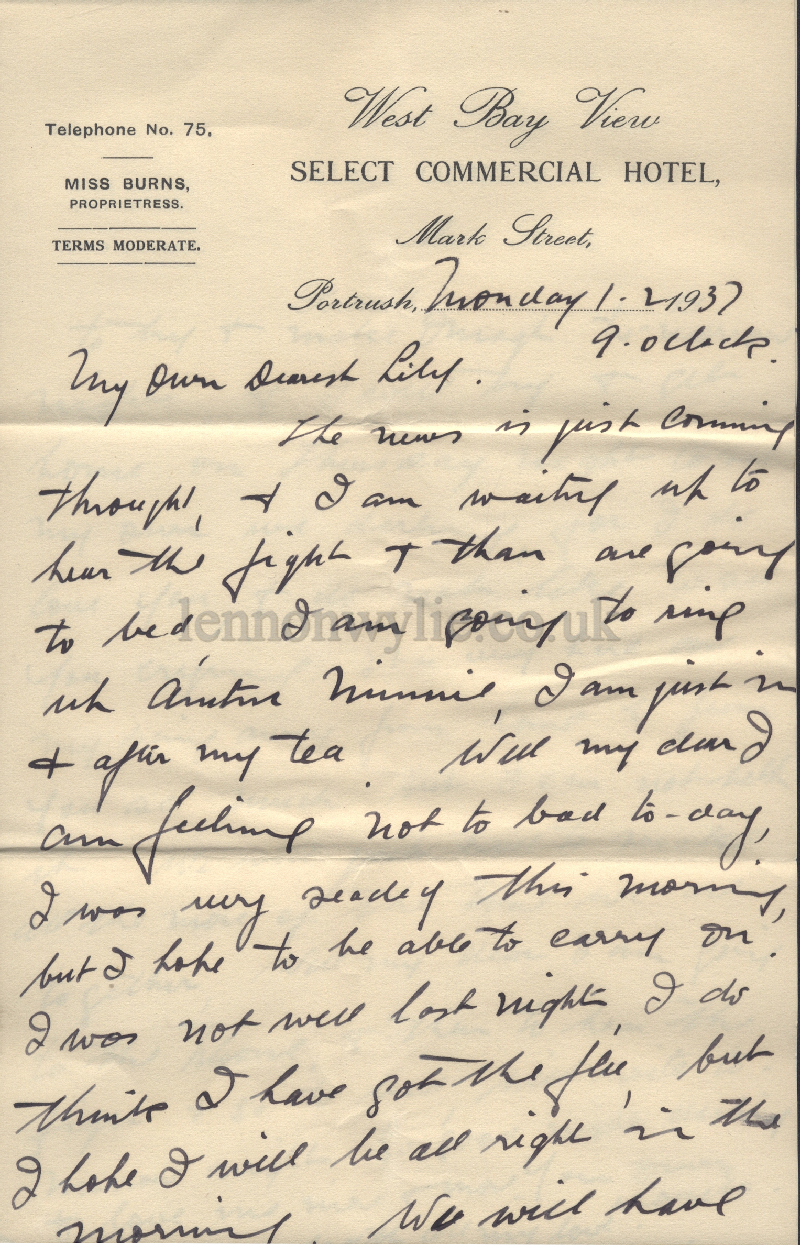 Telephone No. 75.
MISS BURNS,
PROPRIETRESS.
TERMS MODERATE.
West Bay View
SELECT COMMERCIAL HOTEL,
Mark Street,
Portrush, Monday 1-2 1937
9. oclock.
My Own Dearest Lily.
The news is just comming
throught, & I am waiting up to
hear the fight & than are going
to bed, I am going to ring
lennonwylie.co.uk
up Minnie, I am just in
& after my tea Well my dear I
am feeling not to bad to-day,
I was very seadey this morning,
but I hope to be able to carry on.
I was not well last night, I do
think I have got the flu, but
I hope I will be all right in the
morning. We will have